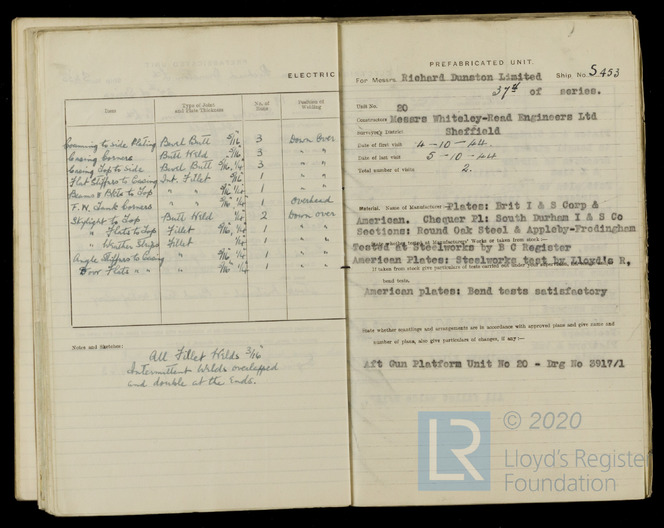 ELECTRIC
Date Type of Joint and Plate Thickness No. of Runs Position of Welding
Coaming to side Plating Bevil Butt 5/16" 3 Down Over
Casing Corners Butt Weld 5/16" 3 " "
Casing Top to side Bevil Butt 5/16", 1/4" 3 " "
Flat Stiffrs to Casing Int. Fillet 5/16", 1/4" 1 " "
Beams & Bkts to Top " " 5/16", 1/4" 1 " "
F.W. Tank Corners " " 5/16", 1/4" 1 Overhead
Skylight to Top Butt Weld 1/4" 2 Down over
" Flats to Top Fillet 5/16", 1/4" 1 " "
" Weather Strips Fillet 1/4" 1 " "
Angle Stiffrs to Casing " 5/16", 1/4" 1 " "
Door Flats " " " 5/16", 1/4" 1 " "
Notes and Sketches:
All Fillet Welds 3/16"
Intermittent Welds overlapped
and double at the Ends.
PREFABRICATED UNIT.
For Messrs. Richard Dunston Limited Ship No. S453
37th of series.
Unit No. 20
Constructors Messrs Whiteley-Read Engineers Ltd
Surveyors District Sheffield
Date of first visit 4-10-44.
Date of last visit 5-10-44
Total number of visits 2.
Material. Name of Manufacturer Plates: Brit I & S Corp &
American. Chequer Pl: South Durham I & S Co
Sections: Round Oak Steel & Appleby-Frodingham
Tested at Steelworks by B C Register
American Plates: Steelworks test by Lloyd's R,
If taken from stock give particulars of tests carried out under your supervision, including
bend tests.
American plates: Bend tests satisfactory
State whether scantlings and arrangements are in accordance with approved plans and give name and
number of plans, also give particulars of changes, if any :—
Aft Gun Platform Unit No 20 - Drg No 3917/1
LR
© 2020
Lloyd's Register
Foundation